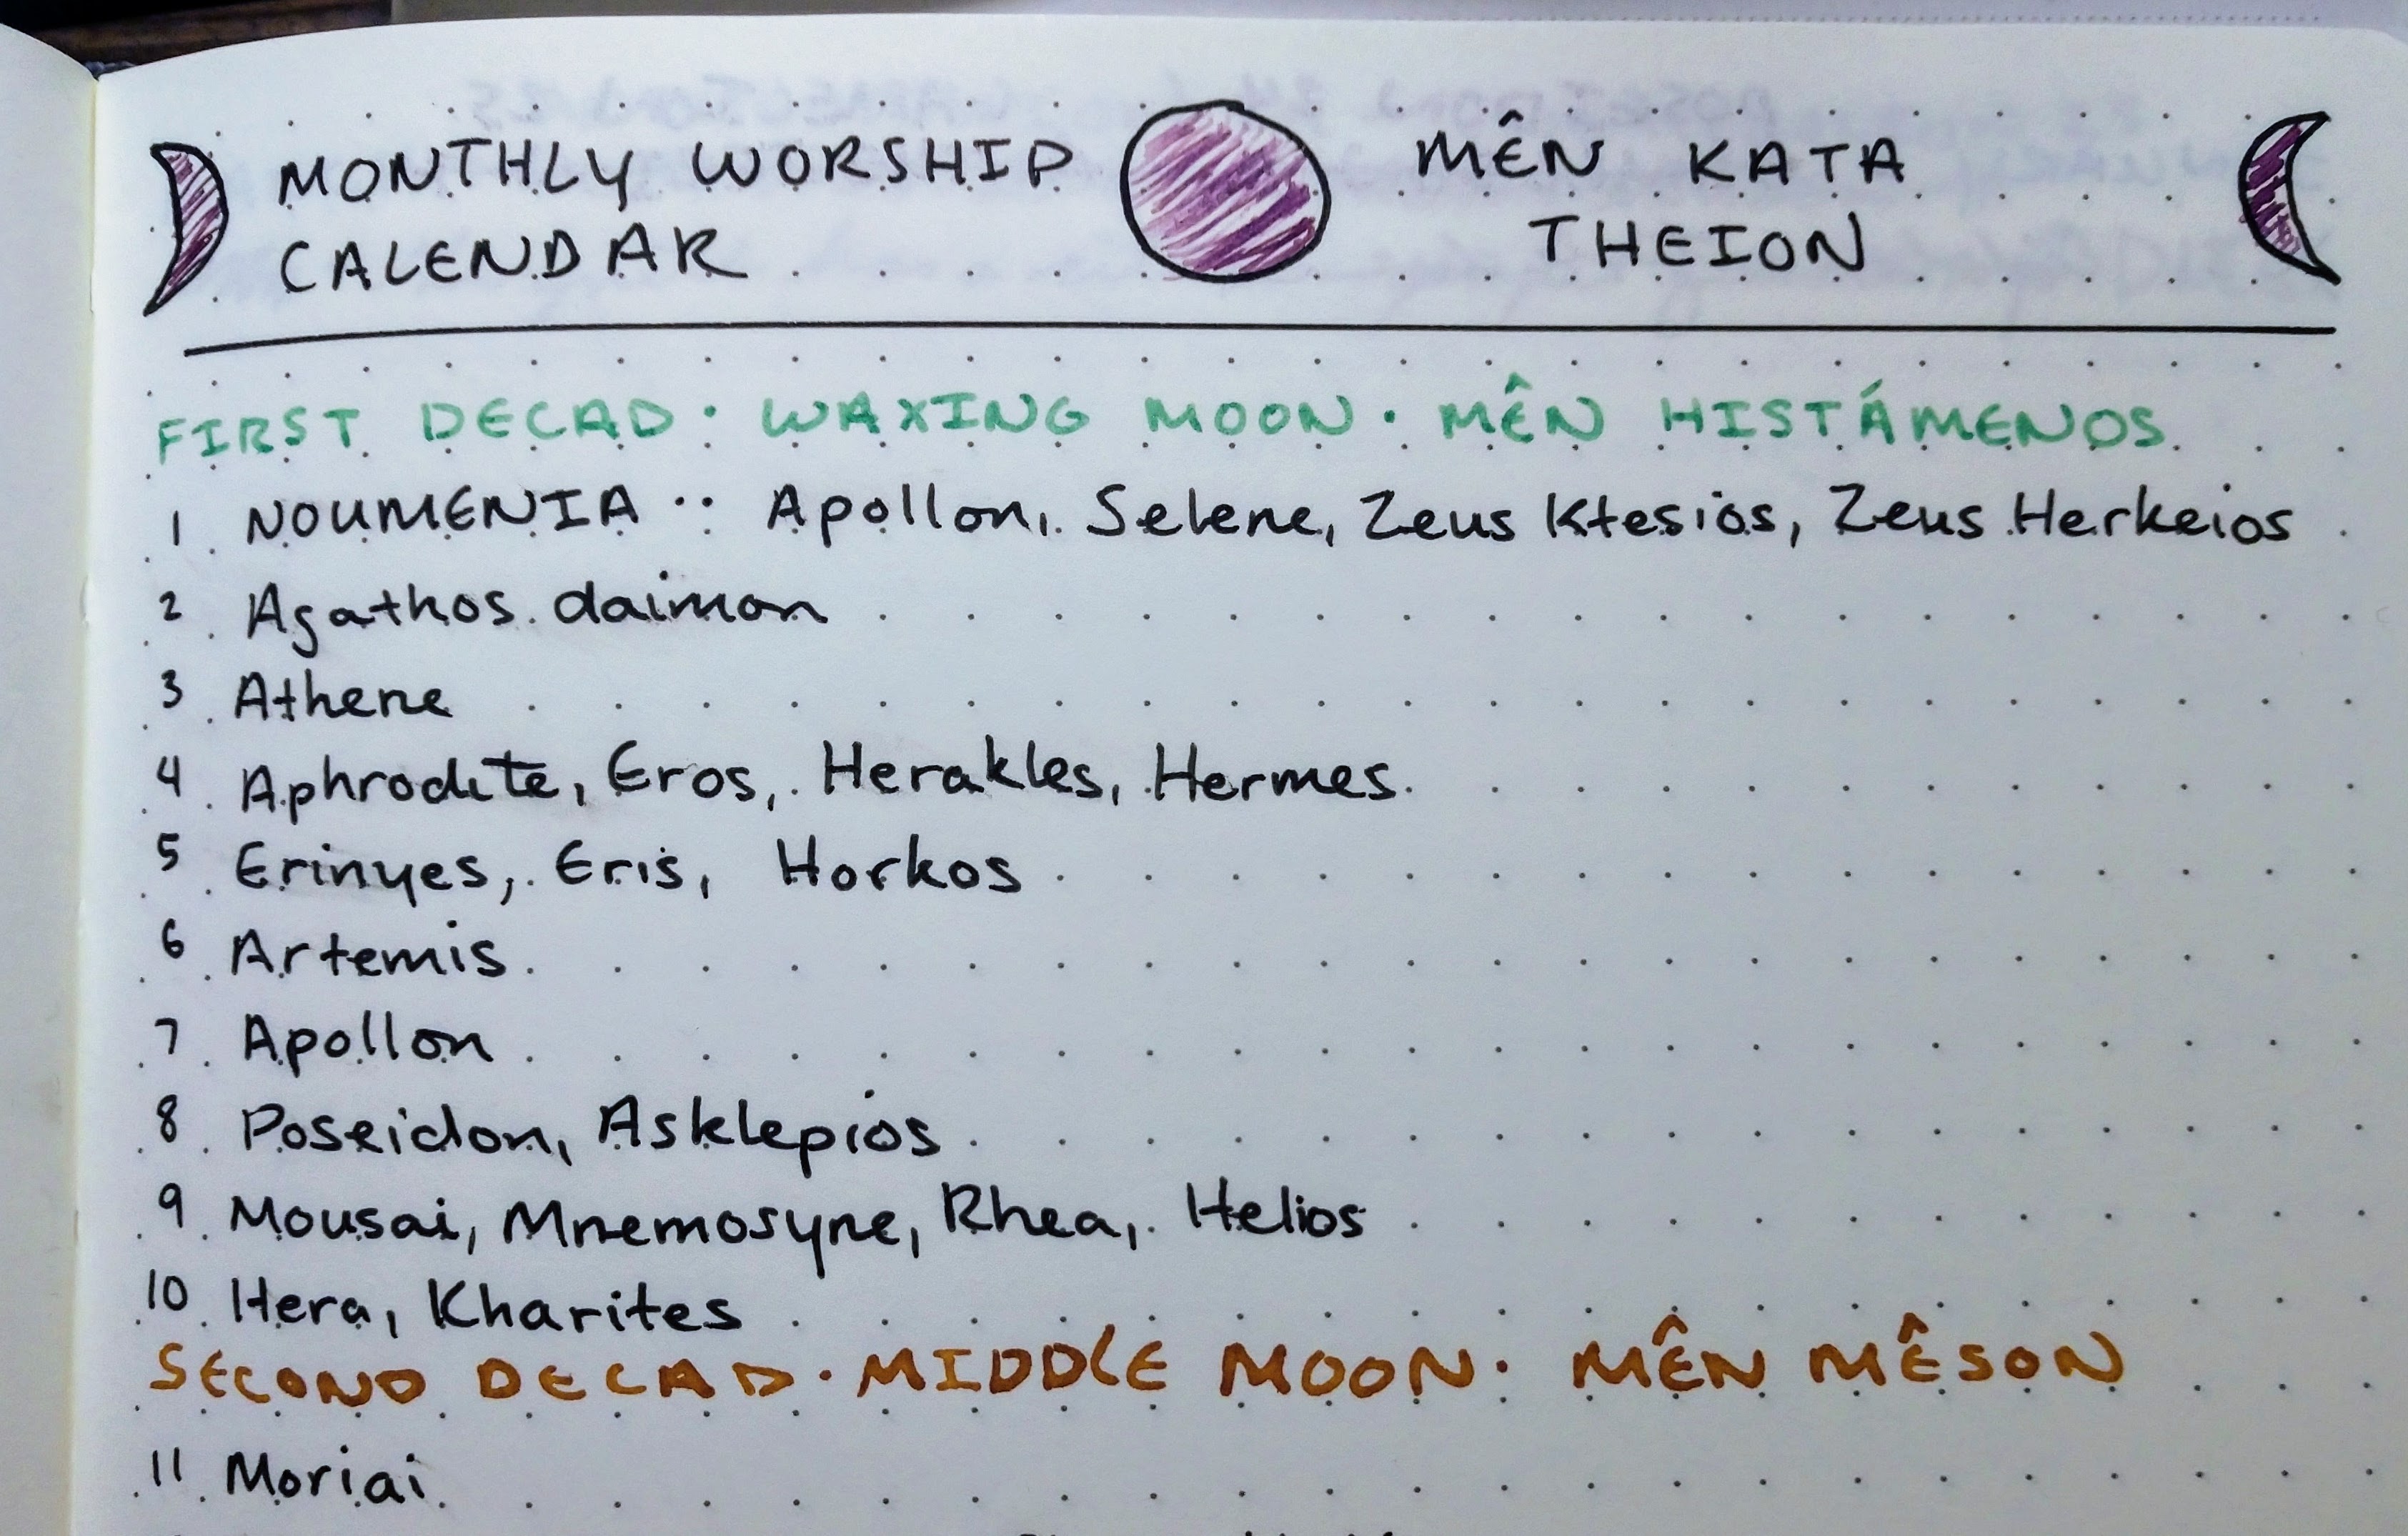 MONTHLY WORSHIP
CALENDAR
MÊN KATA
THEION
FIRST DECAD · WAXING MOON · MÊN HISTÁMENOS
1 NOUMENIA : Apollon, Selene, Zeus Ktesios, Zeus Herkeios
2 Agathos daimon
3 Athene
4 Aphrodite, Eros, Herakles, Hermes
5 Erinyes, Eris, Horkos
6 Artemis
7 Apollon
8 Poseidon, Asklepios
9 Mousai, Mnemosyne, Rhea, Helios
10 Hera, Kharites
SECOND DECAD · MIDDLE MOON · MÊN MÊSON
11 Moriai